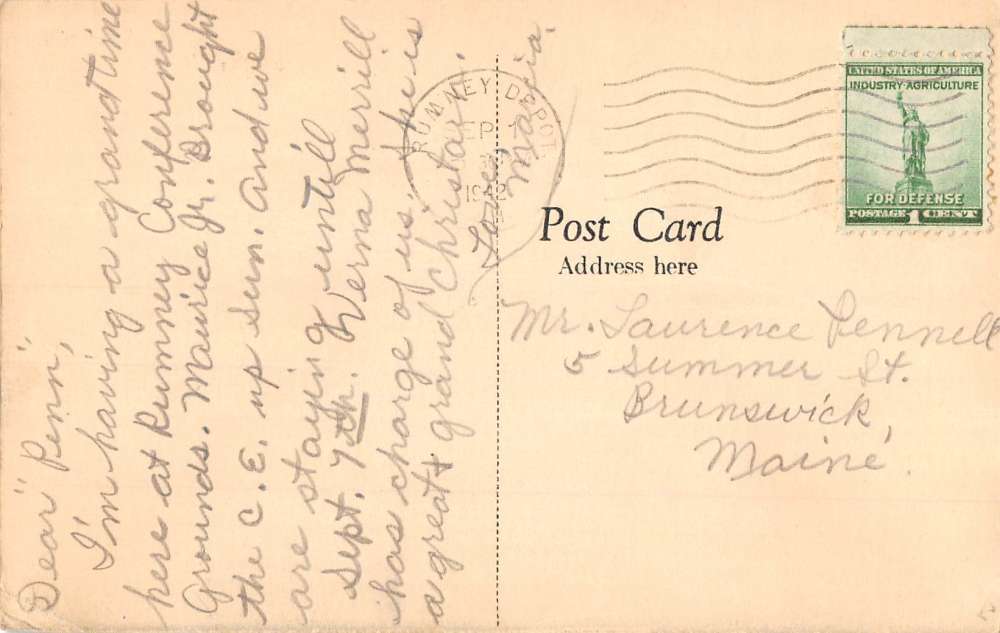 Dear "Penn",
I'm having a grand time
here at Rumney Conference
Grounds. Maurice Jr. Brought
the C. E. up Sun. And we
are staying untill
Sept. 7th. Verna Merrill
has charge of us. She is
a great & grand Christian.
Love,
RUMNEY DEPOT
SEP 1
UNITED STATES OF AMERICA
INDUSTRY·AGRICULTURE
FOR DEFENSE
POSTAGE 1 CENT
Post Card
Address here
Mr. Laurence Pennell
5 Summer St.
Brunswick,
Maine.